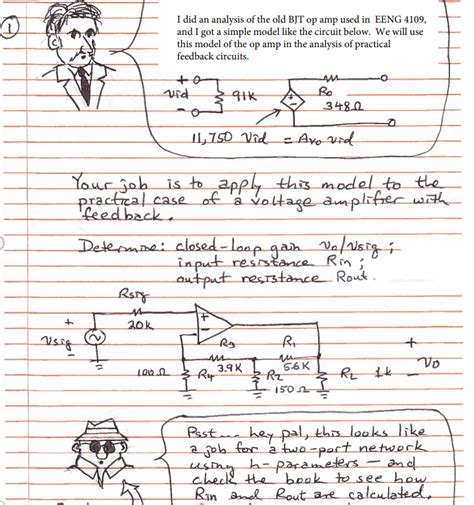 1
I did an analysis of the old BJT op amp used in EENG 4109,
and I got a simple model like the circuit below. We will use
this model of the op amp in the analysis of practical
feedback circuits.
+
vid
-
91K
+
-
Ro
348Ω
11,750 vid = Avo vid
Your job is to apply this model to the
practical case of a voltage amplifier with
feedback.
Determine: closed-loop gain vo/vsig ;
input resistance Rin ;
output resistance Rout.
Rsig
20K
+
Vsig
-
+
-
R3
3.9K
R1
5.6K
100Ω
R4
R2
150Ω
RL
1k
+
Vo
-
Psst... hey pal, this looks like
a job for a two-port network
using h-parameters — and
check the book to see how
Rin and Rout are calculated.